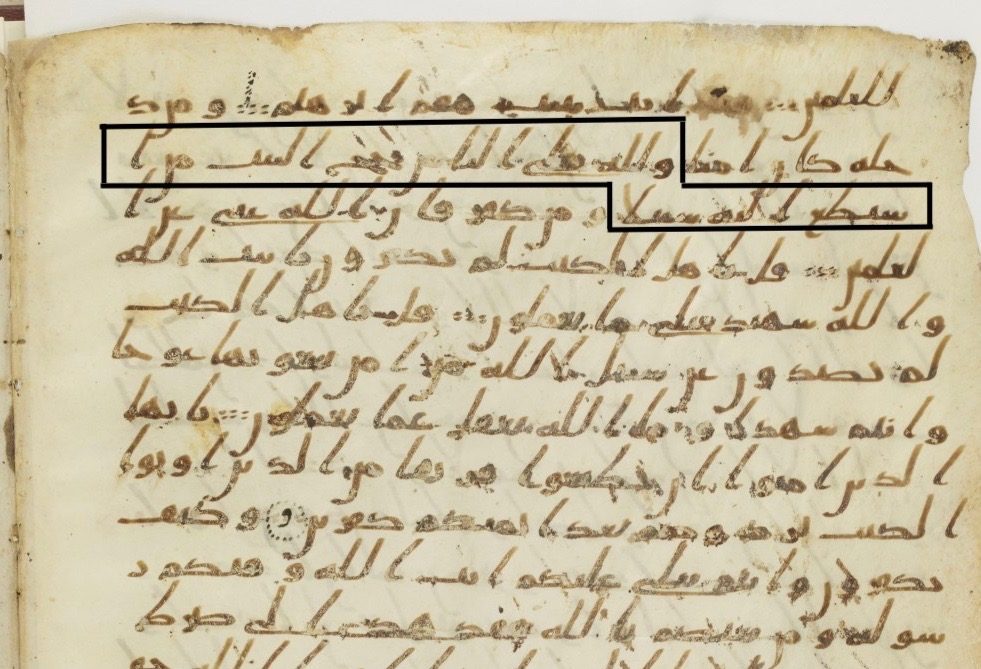 للعلمين فيه ايت بينت مقم ابرهيم و من د
خله كان امنا ولله على الناس حج البيت من ا
ستطع اليه سبيلا و من كفر فان الله غني عن ا
لعلمين قل ياهل الكتب لم تكفرون بايت الله
و الله شهيد على ما تعملون قل ياهل الكتب
لم تصدون عن سبيل الله من امن تبغونها عوجا
و انتم شهدا وما الله بغفل عما تعملون يايها
الذين امنوا ان تطيعوا فريقا من الذين اوتوا
الكتب يردوكم بعد ايمنكم كفرين و كيف
تكفرون و انتم تتلى عليكم ايت الله و فيكم ر
سوله و من يعتصم بالله فقد هدي الى صرط